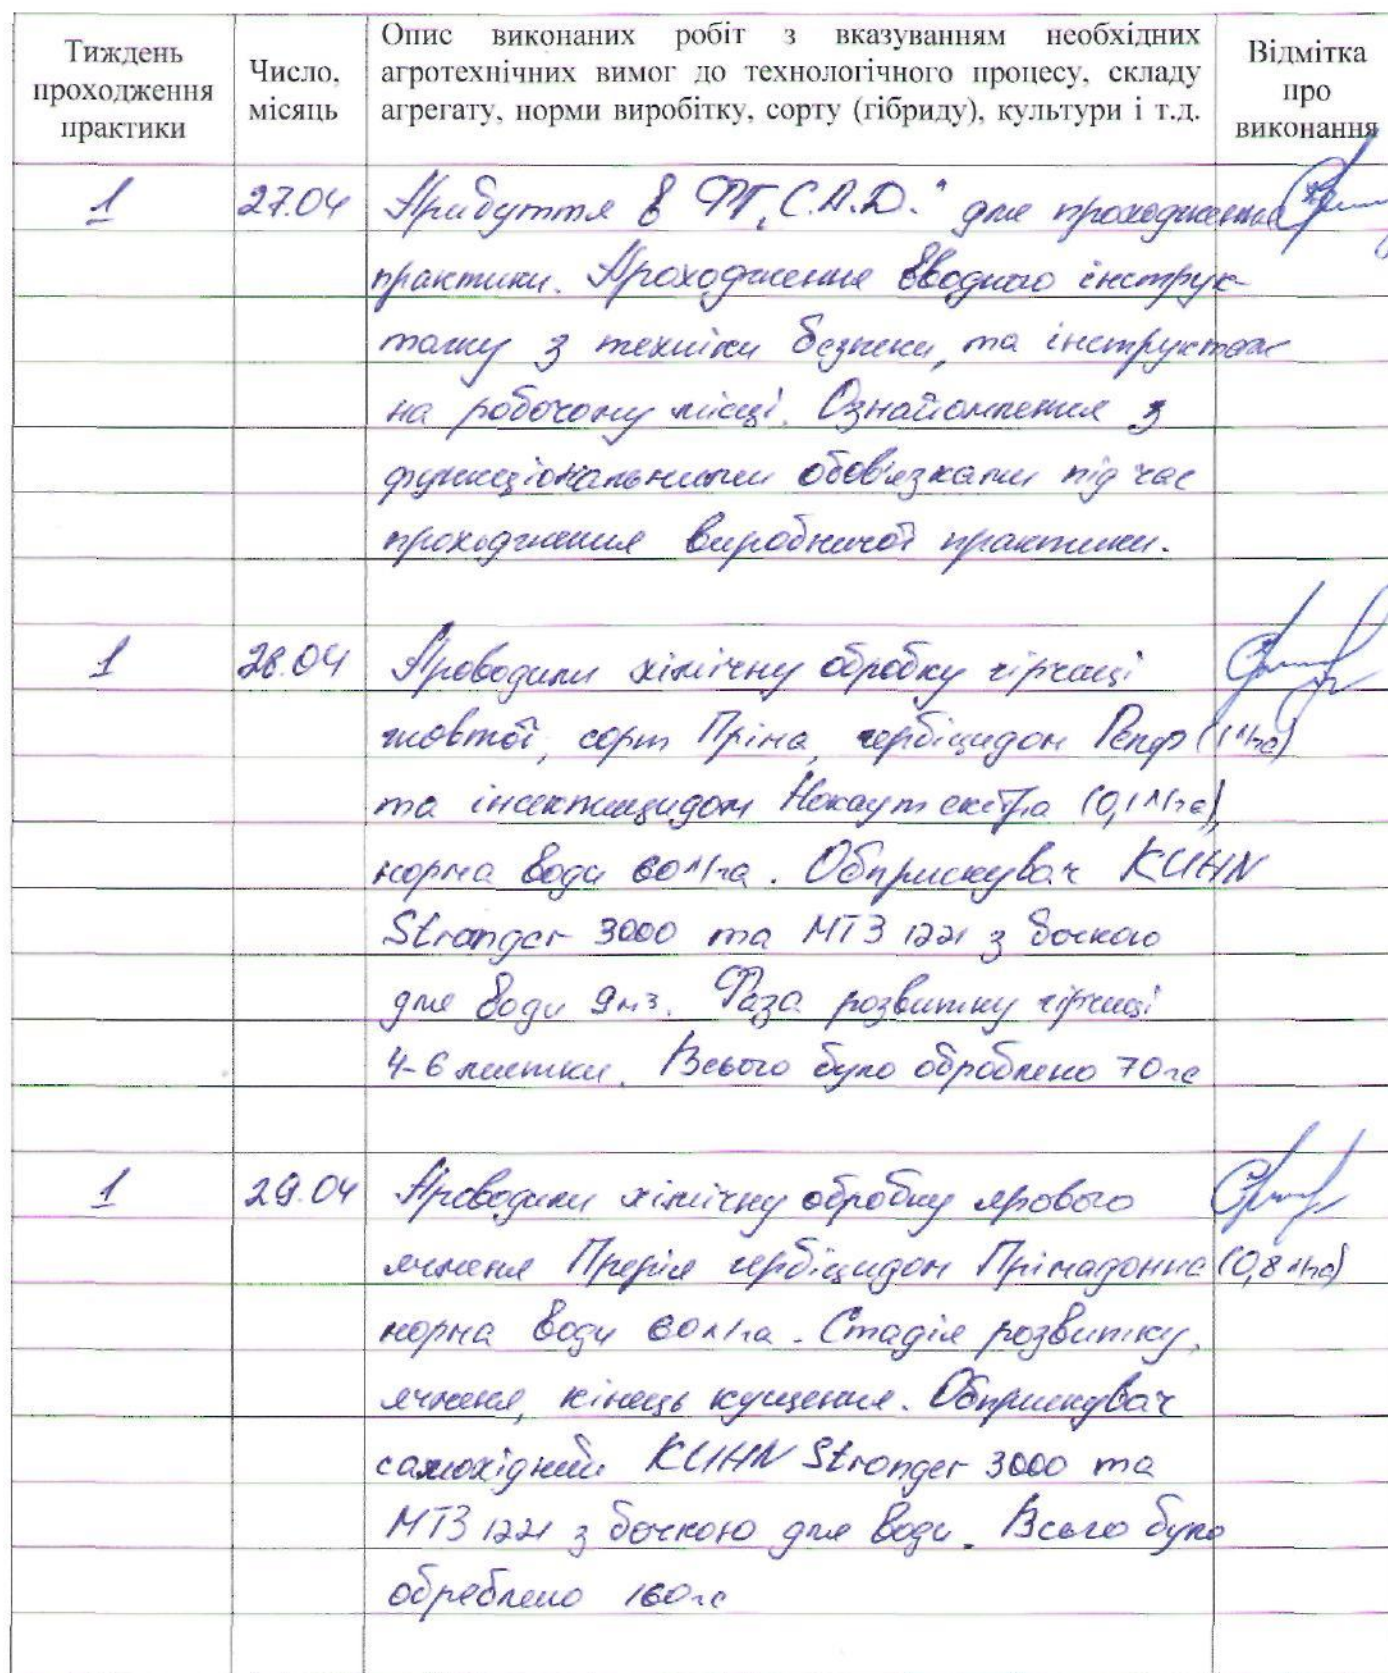 Тиждень проходження практики
Число, місяць
Опис виконаних робіт з вказуванням необхідних
агротехнічних вимог до технологічного процесу, складу
агрегату, норми виробітку, сорту (гібриду), культури і т.д.
Відмітка про виконання
1 27.04 Прибуття в ФГ „С.А.Д.“ для проходження
практики. Проходження вводного інструк-
тажу з техніки безпеки, та інструктаж
на робочому місці. Ознайомлення з
функціональними обов'язками під час
проходження виробничої практики.
1 28.04 Проводили хімічну обробку гірчиці
жовтої, сорт Пріма, гербіцидом Репф (1 л/га)
та інсектицидом Нокаут екстра (0,1 л/га),
норма води 60 л/га. Обприскувач KUHN
Stronger 3000 та МТЗ 1221 з бочкою
для води 9м3. Фаза розвитку гірчиці
4-6 листки. Всього було оброблено 70 га
1 29.04 Проводили хімічну обробку ярового
ячменя Прерія гербіцидом Прімадонна (0,8 л/га)
норма води 60 л/га. Стадія розвитку,
ячменя, кінець кущення. Обприскувач
самохідний KUHN Stronger 3000 та
МТЗ 1221 з бочкою для води. Всього було
оброблено 160 га